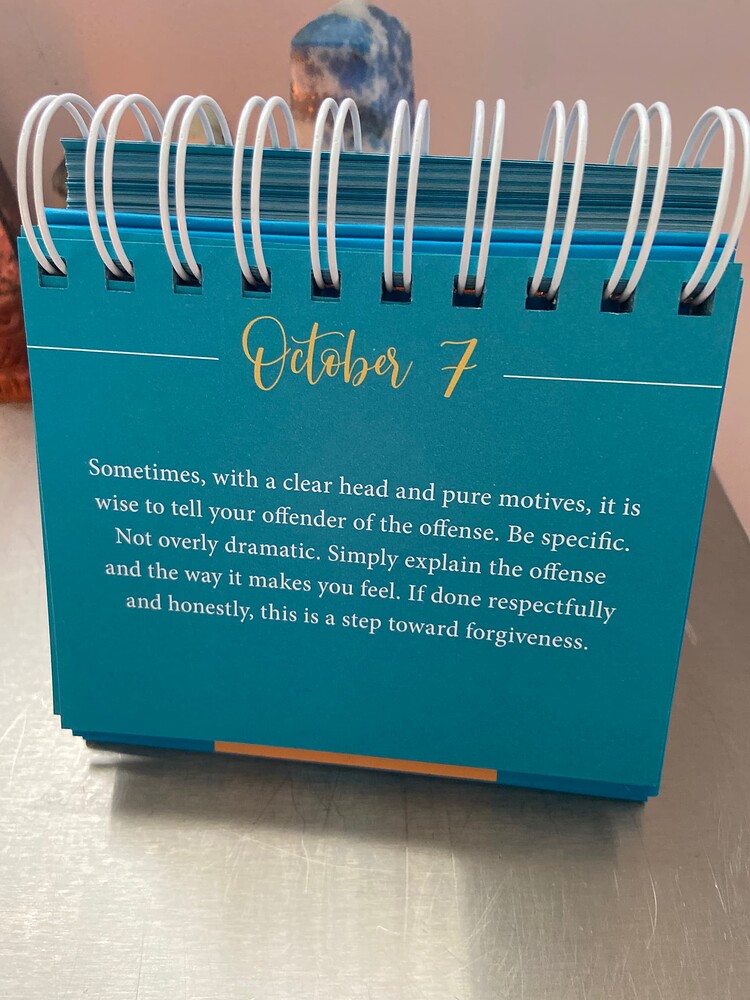 October 7
Sometimes, with a clear head and pure motives, it is
wise to tell your offender of the offense. Be specific.
Not overly dramatic. Simply explain the offense
and the way it makes you feel. If done respectfully
and honestly, this is a step toward forgiveness.